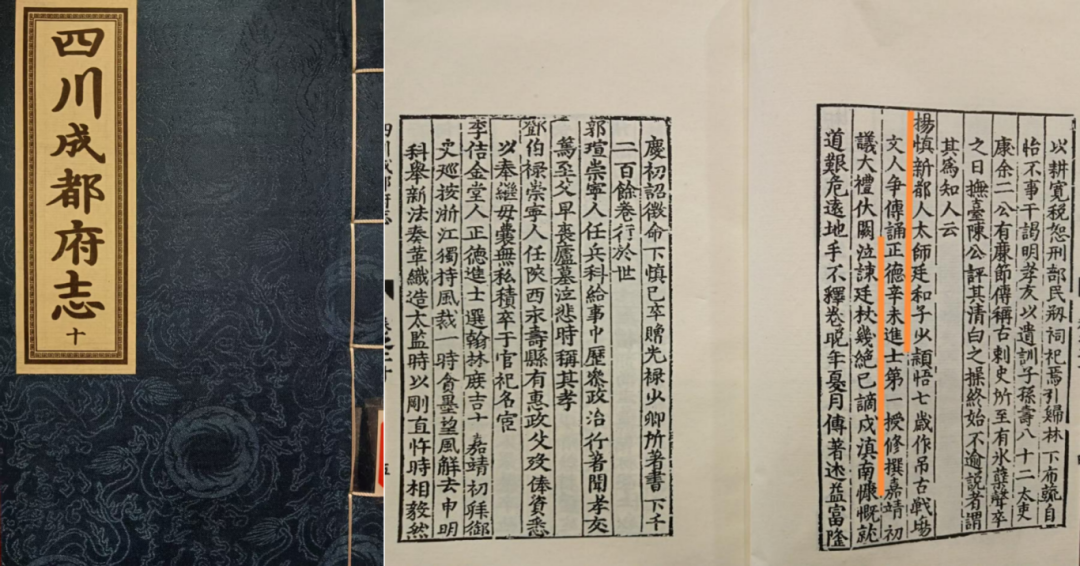 四川成都府志
十
以耕寬稅恕刑部民剏祠祀焉引歸林下布䟽自
怡不事干謁明孝友以遺訓子孫壽八十二太吏
康余二公有廉節傳稱古刺史所至有氷蘖聲卒
之日撫臺陳公評其清白之操終始不逾説者謂
其為知人云
楊慎新都人太師廷和子少穎悟七歲作吊古戰場
文人爭傳誦正德辛未進士第一授修撰嘉靖初
議大禮伏闕泣諫廷杖幾絶已謫戍滇南慷慨就
道艱危遠地手不釋卷晚年月傳著述益富隆
慶初詔徵命下慎已卒贈光禄少卿所著書下千
二百餘卷行於世
郭瑄崇寧人任兵科給事中歷叅政治行著聞孝友
篤至父早喪廬墓泣悲時稱其孝
鄧伯禄崇寧人任陜西永壽縣有惠政父歿俸貲悉
以奉繼母囊無私積卒于官祀名宦
李佶金堂人正德進士選翰林庶吉士嘉靖初拜御
史廵按浙江獨持風裁一時貪墨望風觧去申明
科舉新法奏革織造太監時以剛直忤時相毅然